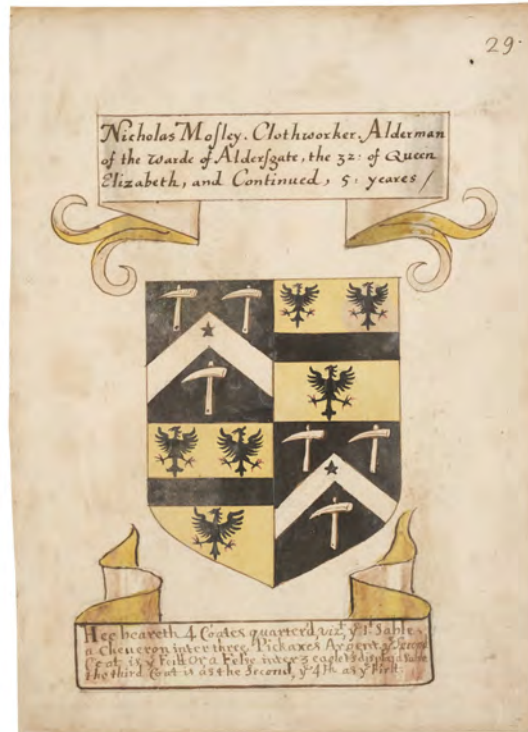 29.
Nicholas Mosley. Clothworker. Alderman
of the warde of Aldersgate, the 32: of Queen
Elizabeth, and Continued, 5: yeares /
Hee beareth 4 Coates quarterd, vizt, ye 1st Sable,
a Cheueron inter three Pickaxes Argent, ye Second
Coat is ye Feild Or a Fesse inter 3 eaglets displayd Sable
the third Coat is as the Second, ye 4th as ye First.